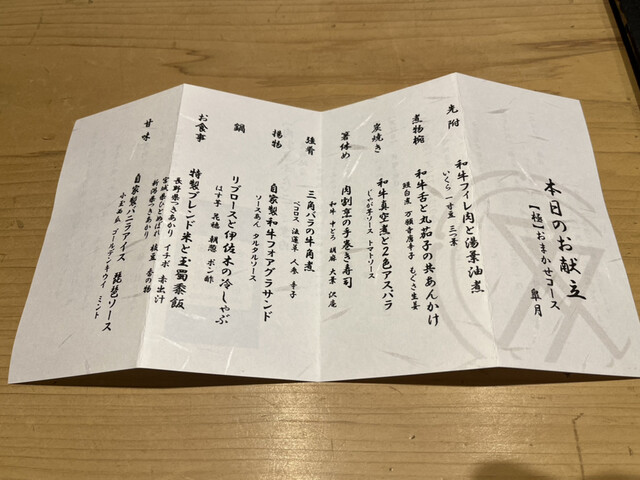 本日のお献立
【極】おまかせコース 皐月
先附
和牛フィレ肉と湯葉油煮
いくら 一寸豆 三つ葉
煮物椀
和牛舌と丸茄子の共あんかけ
独白煮 万願寺唐辛子 もぐさ生姜
炭焼き
和牛真空煮と2色アスパラ
じゃが芋ソース トマトソース
箸休め
肉割烹の手巻き寿司
和牛 中とろ 胡麻 大葉 沢庵
強肴
三角バラの牛角煮
ペコロス 法蓮草 人参 辛子
揚物
自家製和牛フォアグラサンド
ソースあん タルタルソース
鍋
リブロースと伊佐木の冷しゃぶ
はす芋 花穂 胡葱 ポン酢
お食事
特製ブレンド米と玉蜀黍飯
長野県つきあかり イチボ 赤出汁
宮城県ひとめぼれ 枝豆 香の物
新潟県つきあかり
甘味
自家製バニラアイス 琵琶ソース
小玉西瓜 ゴールデンキウイ ミント